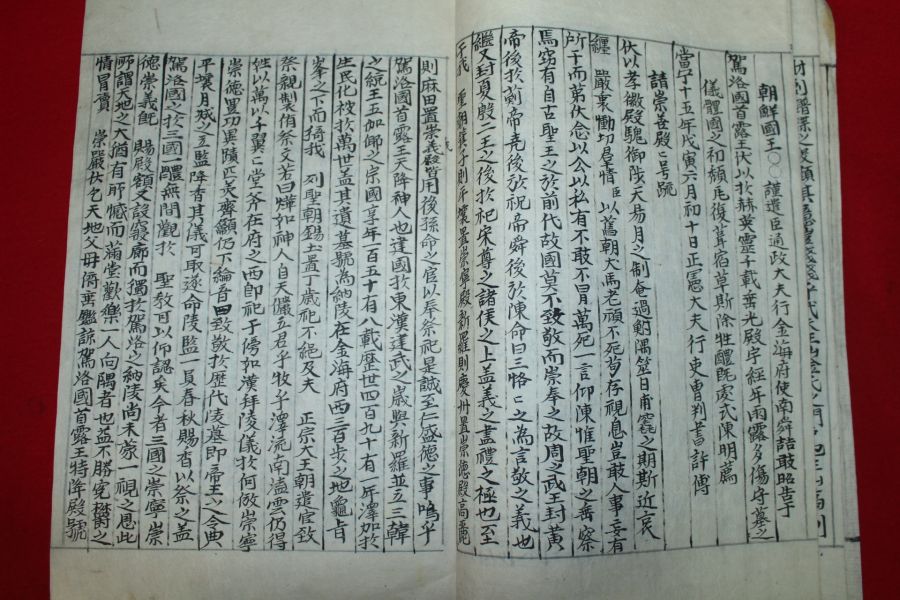 朝鮮國王○○謹遣臣通政大夫行金海府使南舜喆敢昭告于
駕洛國首露王伏以於赫英靈千載垂光殿宇經年雨露多傷守墓之
儀體國之初頻庀復葺宿草斯除牲醴旣處式陳明薦
當宁十五年戊寅六月初十日正憲大夫行吏曹判書許傳
請崇善殿號
伏以孝徽殿魄御陟天易月之制奄過對隅筮日甫竁之期斯近哀
纏嚴衷慟切群情臣以舊朝犬馬老頑不死苟存視息豈敢人事妄有
所干而第伏念以公以私有不敢不冒萬死一言仰陳惟聖朝之垂察
焉窃有自古聖王之於前代故國莫不致敬而崇奉之故周之武王封黃
帝後於薊帝堯後於祝帝舜後於陳命曰三恪恪之為言敬之義也
繼又封夏殷二王之後於杞宋尊之諸侯之上盖義之盡禮之極也至
于我
聖朝箕子則平壤置崇寧殿新羅則慶州置崇德殿高麗
則麻田置崇義殿皆用後孫命之官以奉祭祀是誠至仁盛德之事嗚乎
駕洛國首露王天降神人也建國於東漢建武之歲與新羅並立三韓
之統王五伽倻之宗國享年百五十有八載歷世四百九十有一年澤加於
生民化被於萬世盖其遺墓號為納陵在金海府西三百步之地龜旨
峯之下而猗我 列聖朝錫土置丁歲祀不絕及夫 正宗大王朝遣官致
祭親製侑祭文若曰燁如神人自天儼五君乎牧乎澤流南溘雲仍得
姓以萬以千翼翼堂斧在府之西卽祀于傍如漢拜陵儀於何倣崇寧
崇德異功異蹟匹美齊顯仍下綸音曰致敬於歷代陵墓卽帝王之令典
平壤月城之立監降香其儀可取遂命陵監一員春秋賜香以祭之盖
駕洛國之於三國一體無間觀於 聖敎可以仰認矣今者三國之崇寧崇
德崇義旣 賜殿額又設寢廊而獨於駕洛之納陵尚未蒙一視之恩此
所謂天地之大猶有所憾而滿堂歡樂一人向隅者也茲不勝寃欎之
情冒瀆 崇嚴伏乞天地父母俯垂鑑諒駕洛國首露王特降殿號